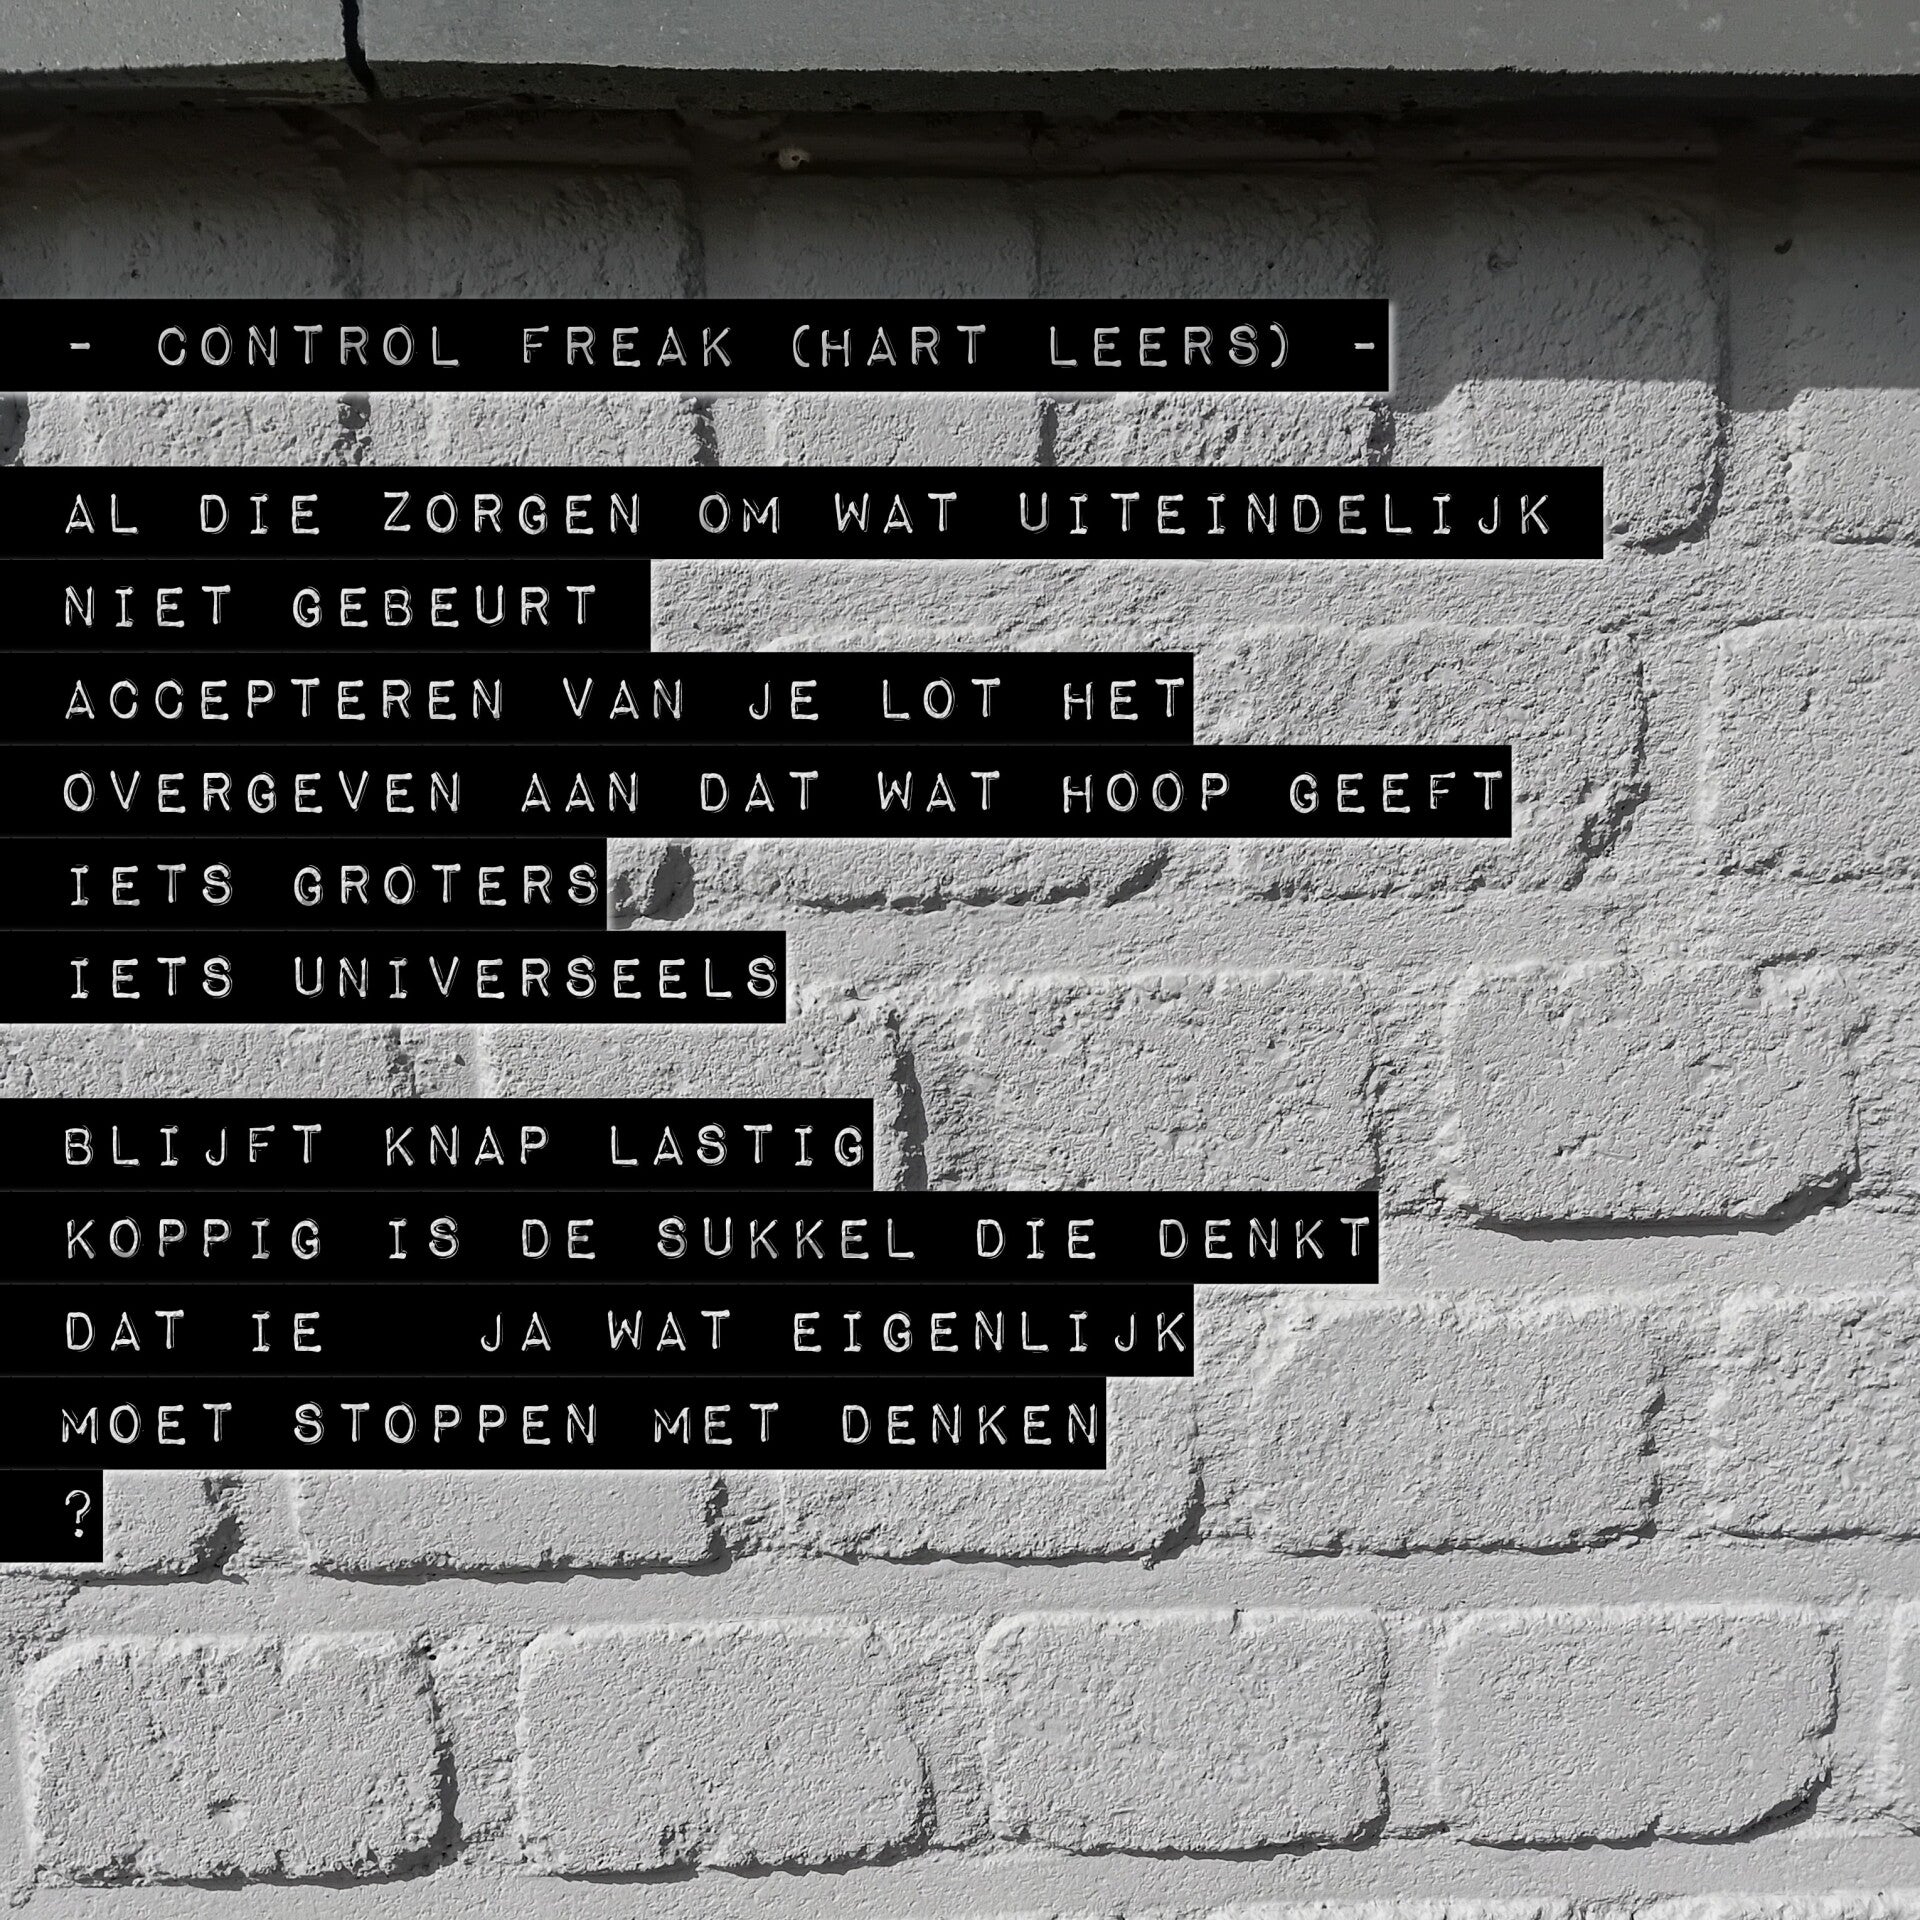 - CONTROL FREAK (HART LEERS) -
AL DIE ZORGEN OM WAT UITEINDELIJK
NIET GEBEURT
ACCEPTEREN VAN JE LOT HET
OVERGEVEN AAN DAT WAT HOOP GEEFT
IETS GROTERS
IETS UNIVERSEELS
BLIJFT KNAP LASTIG
KOPPIG IS DE SUKKEL DIE DENKT
DAT IE   JA WAT EIGENLIJK
MOET STOPPEN MET DENKEN
?